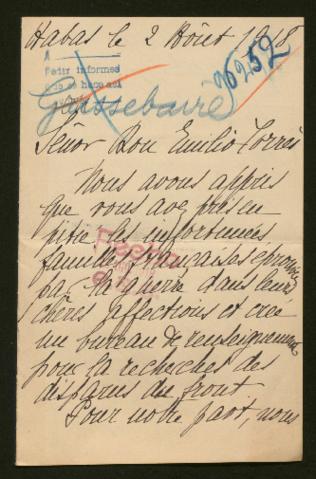 Habas le 2 Août 1918
A
Pedir informes
96252
Gaissebaire
Señor Don Emilio Torrès
Nous avons appris
que vous avez pris en
pitié les infortunées
familles françaises eprouvées
par la guerre dans leurs
chères affections et créé
un bureau de renseignements
pour la recherches des
disparus du front
Pour notre part, nous